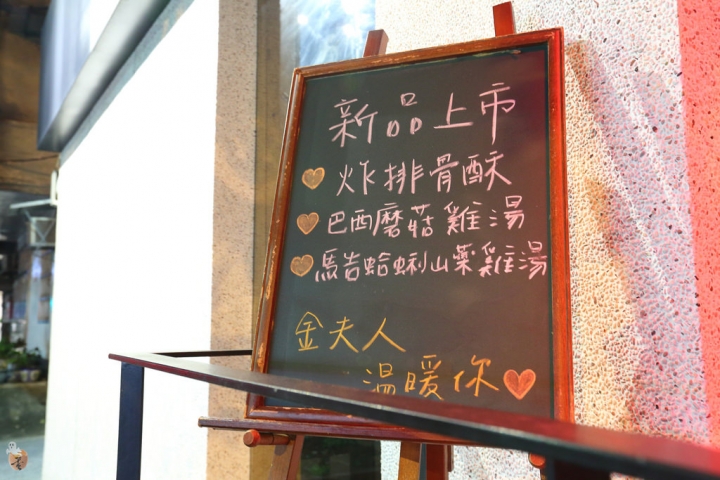 新品上市
炸排骨酥
巴西磨菇雞湯
馬告蛤蜊山藥雞湯
金夫人
溫暖你